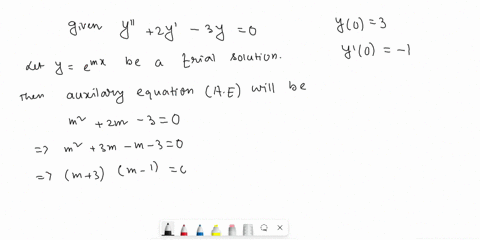 given y'' + 2y' - 3y = 0
y(0) = 3
y'(0) = -1
Let y = e^{mx} be a trial solution.
Then auxilary equation (A.E) will be
m² + 2m - 3 = 0
=> m² + 3m - m - 3 = 0
=> (m+3) (m-1) = 0